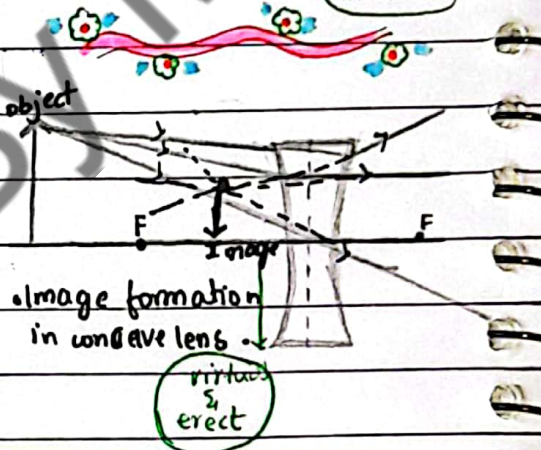 object
F
F
Image
• Image formation
in concave lens .
virtual
&
erect